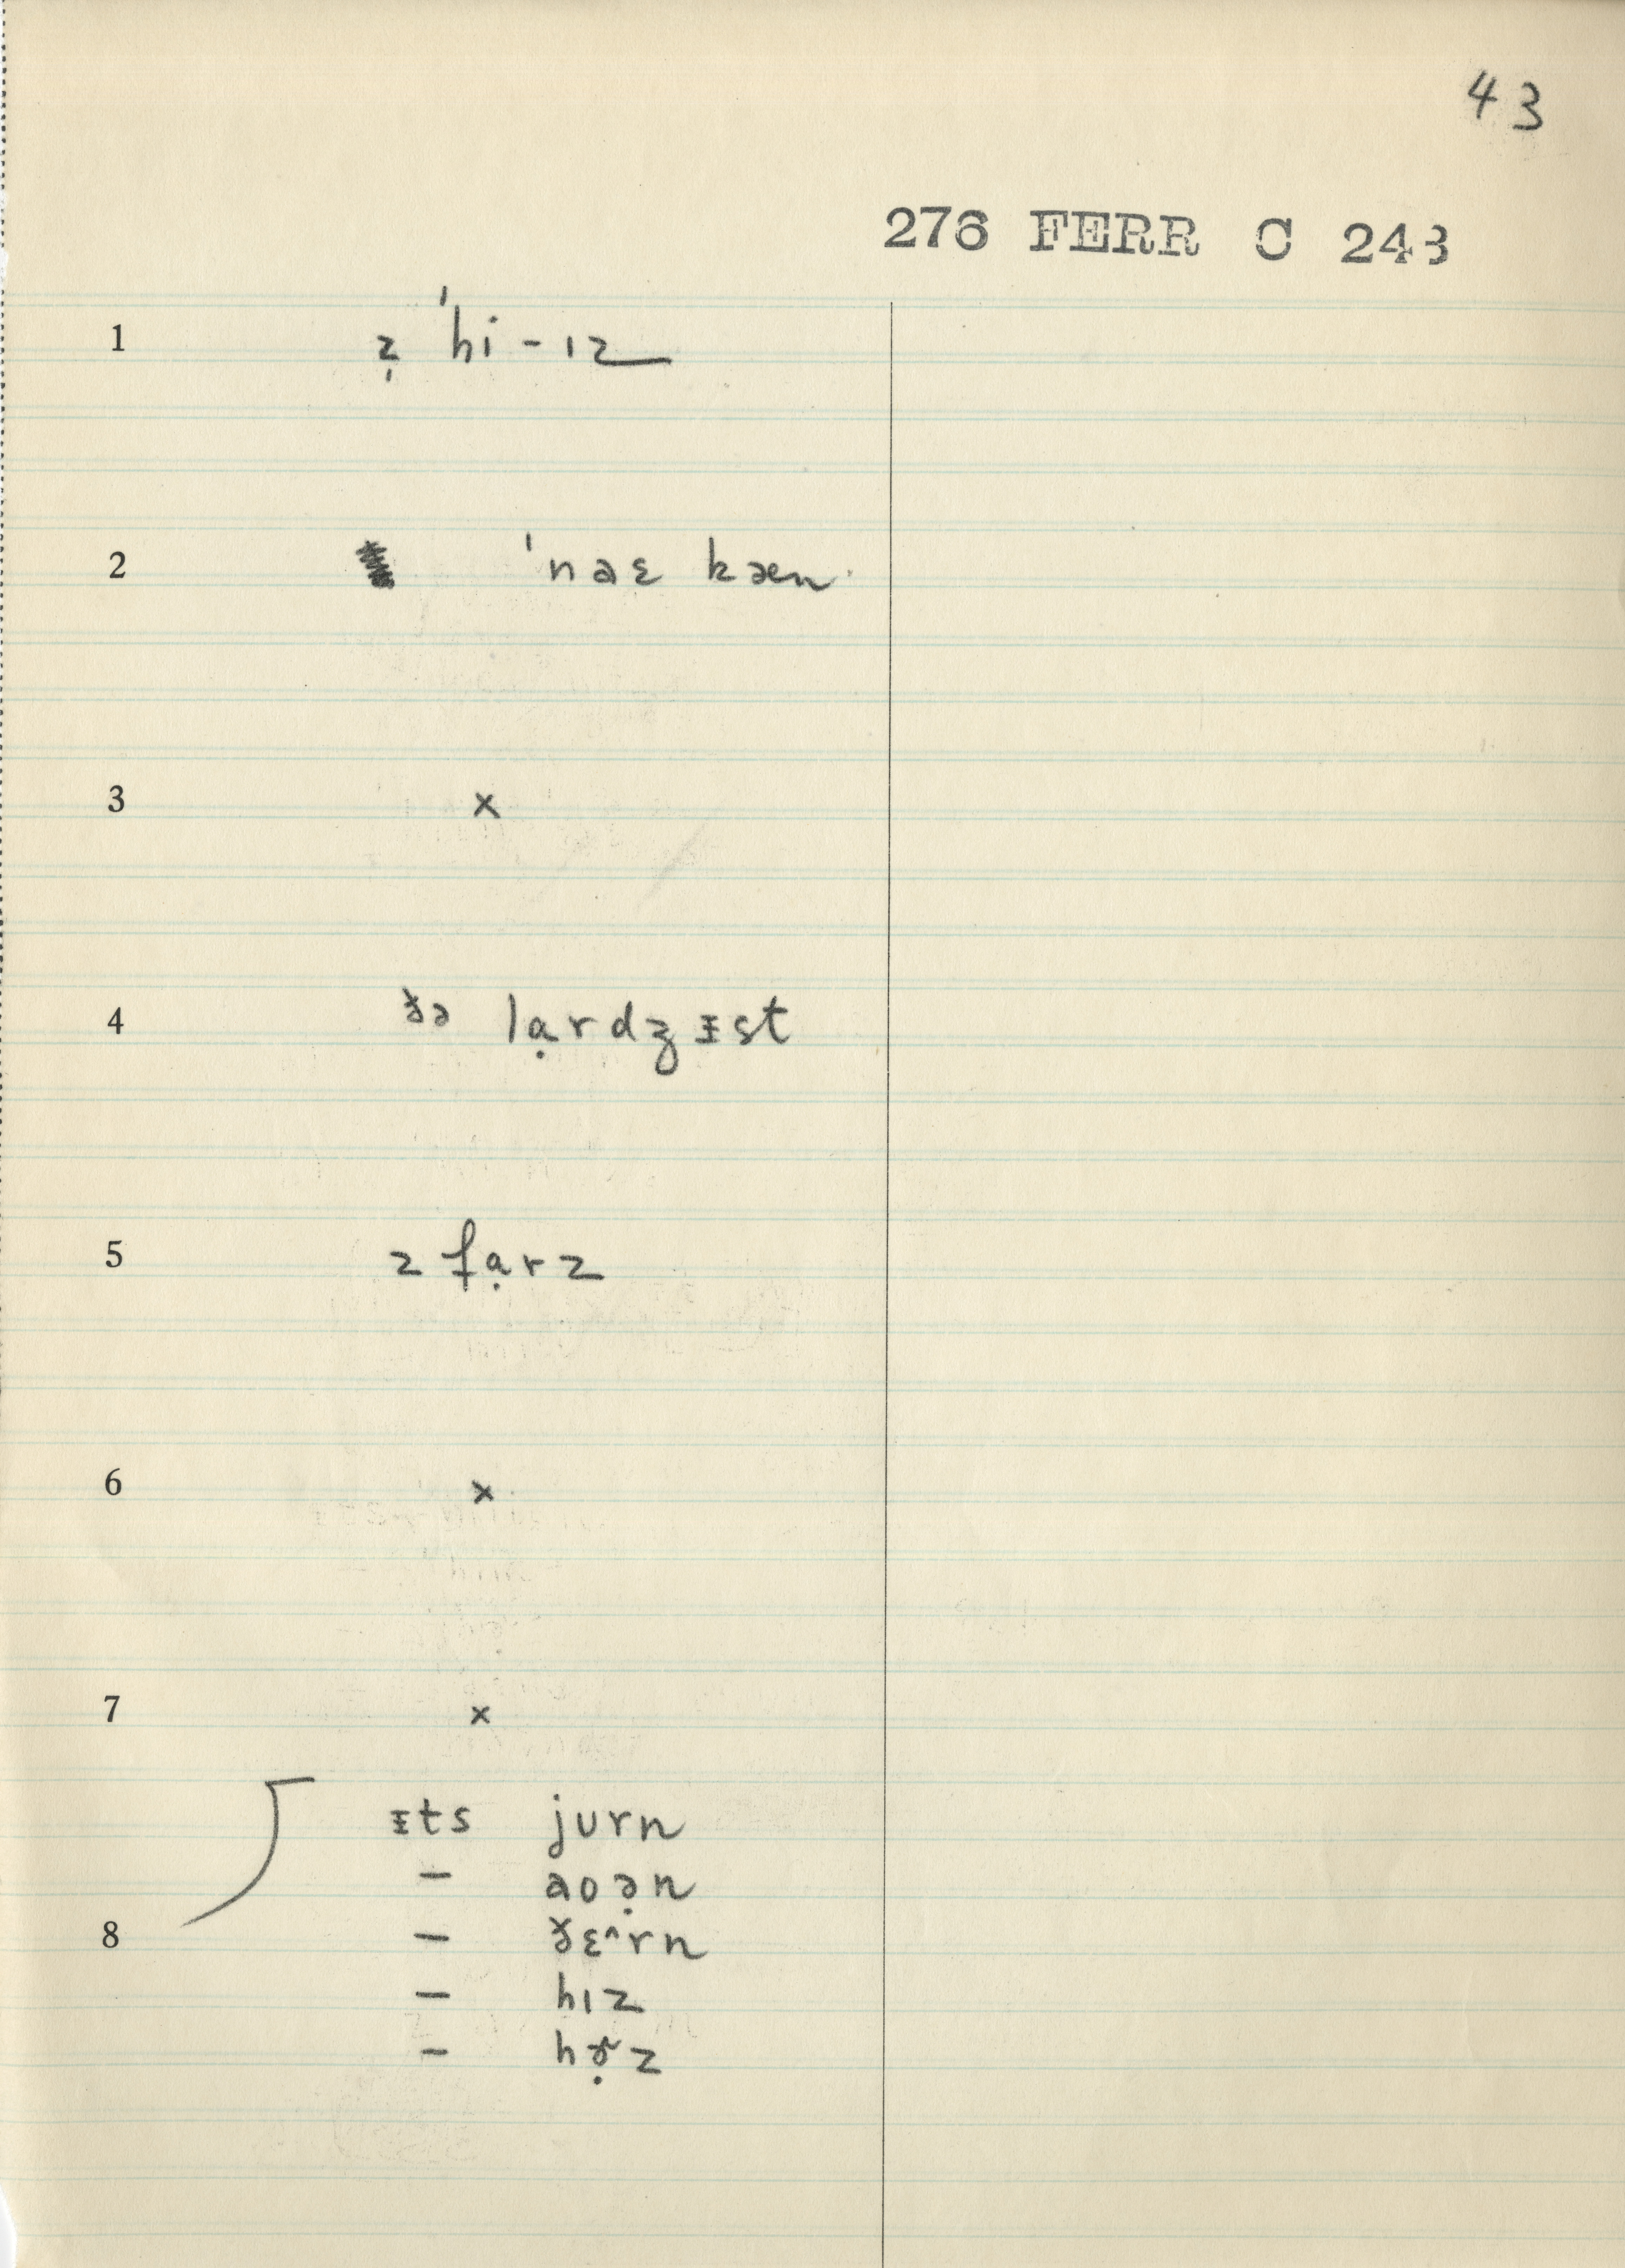 43
276 FERR C 243
1 z̩ ˈhi-ɪz
2 ˈnaɛ kæn
3 x
4 ðə lạrdʒᵻst
5 z fạrz
6 x
7 x
ᵻts jʊrn
– aʊə̣n
8 – ðɛ^rn
– hɪz
– hɚ̣z